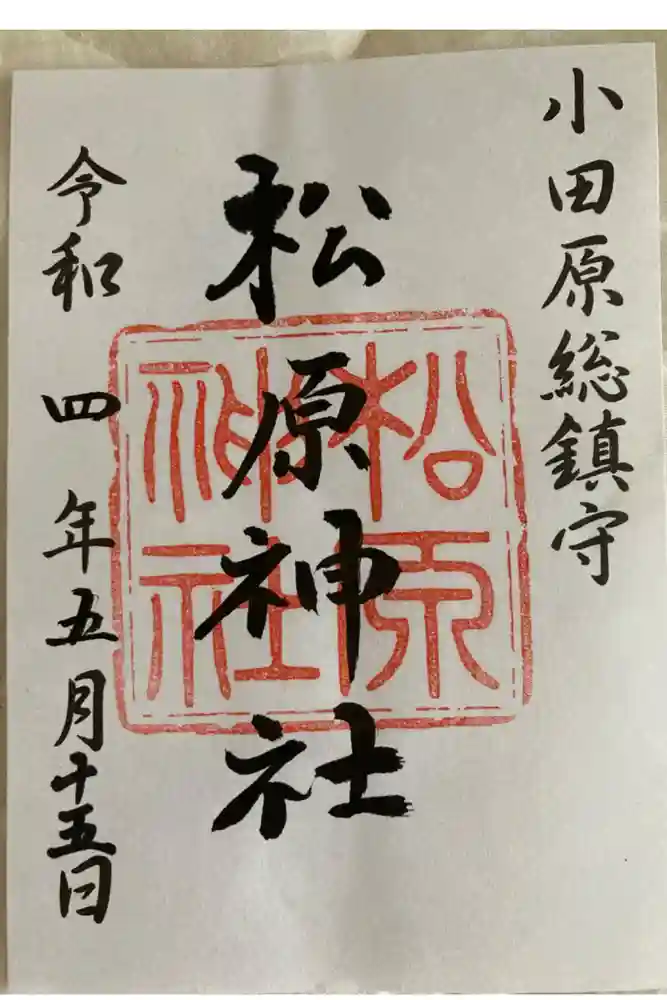 小田原総鎮守
松原神社
松原
神社
令和四年五月十五日